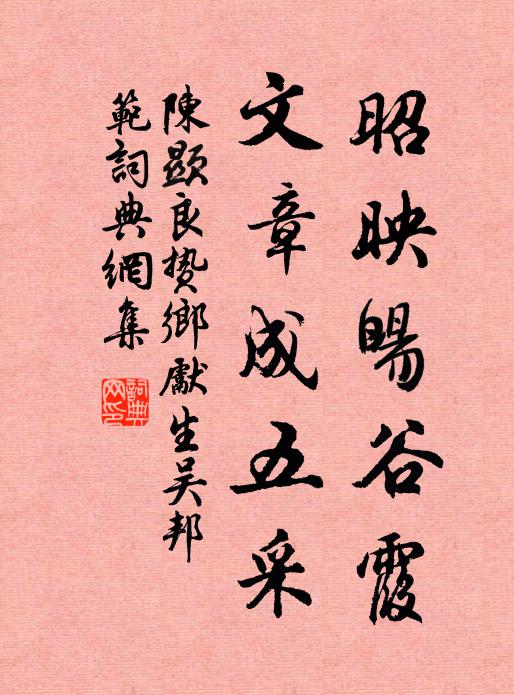 昭映暘谷霞
文章成五采
陳顯良贄鄉獻生吳邦
範詞典網集
詞典
网印